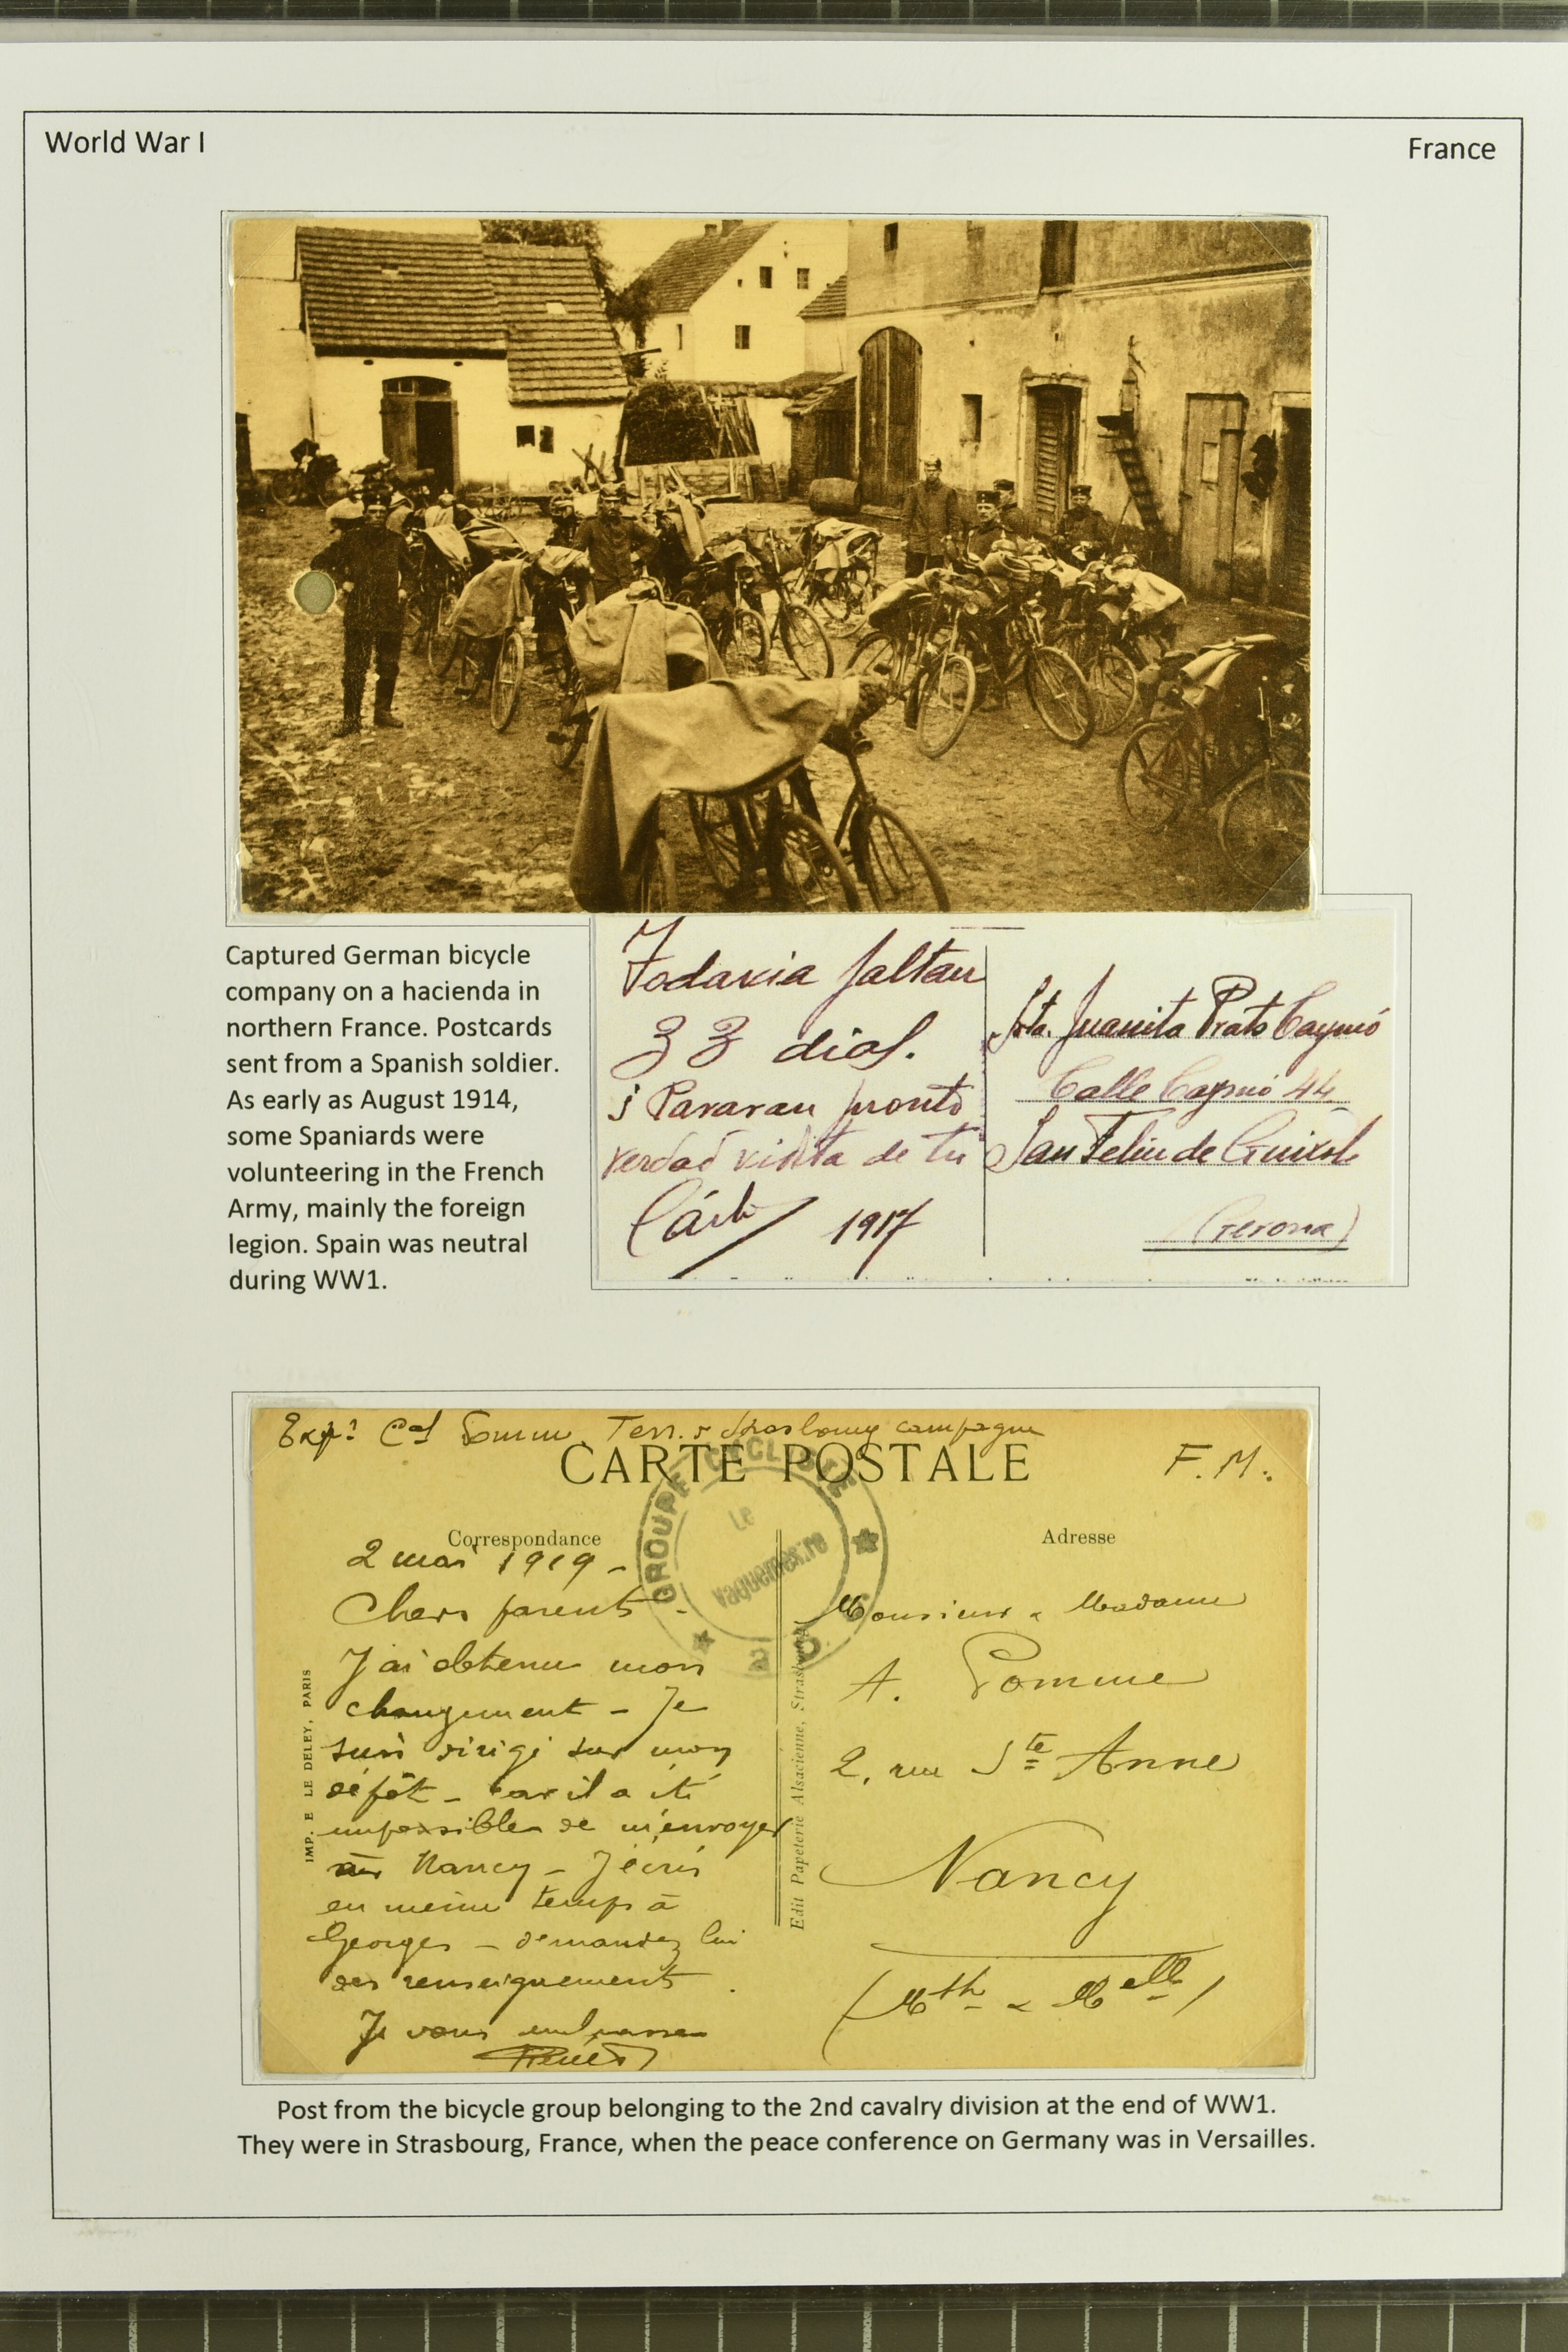 World War I
France
Captured German bicycle
company on a hacienda in
northern France. Postcards
sent from a Spanish soldier.
As early as August 1914,
some Spaniards were
volunteering in the French
Army, mainly the foreign
legion. Spain was neutral
during WW1.
Todavia faltan
33 dias.
¡ Pararan pronto
verdad visita de tu
1917
Srta. Juanita Prats Caymó
Calle Caymó 44
San Feliu de Guixols
(Gerona)
Strasbourg campagne
CARTE POSTALE
F. M.
GROUPE CYCLISTE
Le
Vaguemestre
2 D C
Correspondance
Adresse
2 mai 1919 -
Chers parents -
J'ai obtenu mon
changement - Je
suis dirigé sur mon
dépôt - car il a été
impossible de m'envoyer
Nancy - J'écris
en même temps à
Georges - demandez lui
des renseignements.
Je vous embrasse
René
IMP. E LE DELEY, PARIS
Edit Papeterie Alsacienne, Strasbourg
Monsieur & Madame
A. Pomme
2, rue Ste Anne
Nancy
(Mthe & Melle)
Post from the bicycle group belonging to the 2nd cavalry division at the end of WW1.
They were in Strasbourg, France, when the peace conference on Germany was in Versailles.